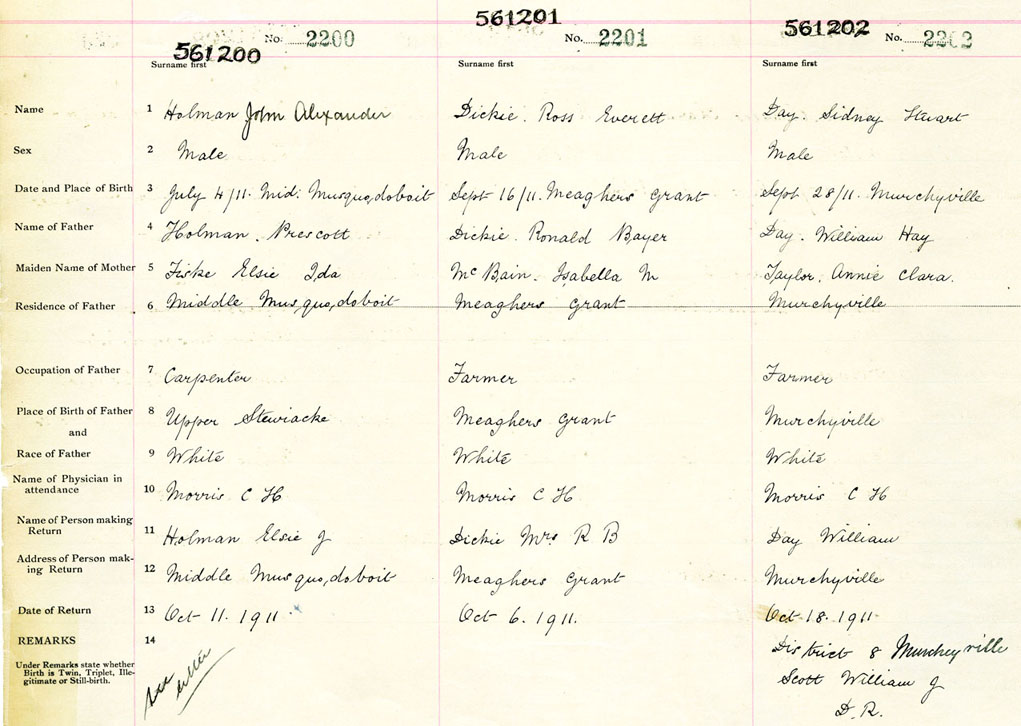 561200 No. 2200 561201 No. 2201 561202 No. 2202
Surname first Surname first Surname first
Name 1 Holman John Alexander Dickie. Ross Everett Day. Sidney Stuart
Sex 2 Male Male Male
Date and Place of Birth 3 July 4/11. Mid: Musquodoboit Sept 16/11. Meaghers Grant Sept 28/11. Murchyville
Name of Father 4 Holman. Prescott Dickie. Ronald Bayer Day. William Hay
Maiden Name of Mother 5 Fiske Elsie Ida McBain. Isabella M Taylor. Annie Clara.
Residence of Father 6 Middle Musquodoboit Meaghers Grant Murchyville
Occupation of Father 7 Carpenter Farmer Farmer
Place of Birth of Father 8 Upper Stewiacke Meaghers Grant Murchyville
and
Race of Father 9 White White White
Name of Physician in
attendance 10 Morris C H Morris C H Morris C H
Name of Person making
Return 11 Holman Elsie J Dickie Mrs R B Day William
Address of Person mak-
ing Return 12 Middle Musquodoboit Meaghers Grant Murchyville
Date of Return 13 Oct 11. 1911 Oct 6. 1911. Oct 18. 1911
REMARKS 14 District 8 Murcheyville
Under Remarks state whether
Birth is Twin, Triplet, Ille-
gitimate or Still-birth.
see letter
Scott William J
D. R.